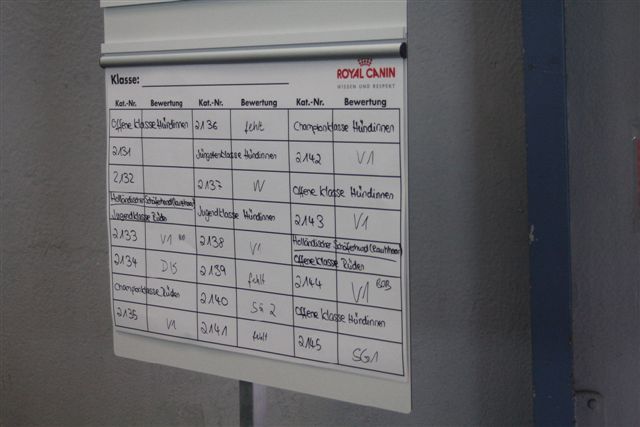 ROYAL CANIN
WISSEN UND RESPEKT
Klasse:
Kat.-Nr. Bewertung Kat.-Nr. Bewertung Kat.-Nr. Bewertung
Offene Klasse Hündinnen
2131
2132
Holländischer Schäferhund (Kurzhaar)
Jugendklasse Rüden
2133 V1
2134 DIS
Championklasse Rüden
2135 V1
2136 fehlt
Jüngstenklasse Hündinnen
2137 VV
Jugendklasse Hündinnen
2138 V1
2139 fehlt
2140 SG 2
2141 fehlt
Championklasse Hündinnen
2142 V1
Offene Klasse Hündinnen
2143 V1
Holländischer Schäferhund (Rauhhaar)
Offene Klasse Rüden
2144 V1 BOB
Offene Klasse Hündinnen
2145 SG1